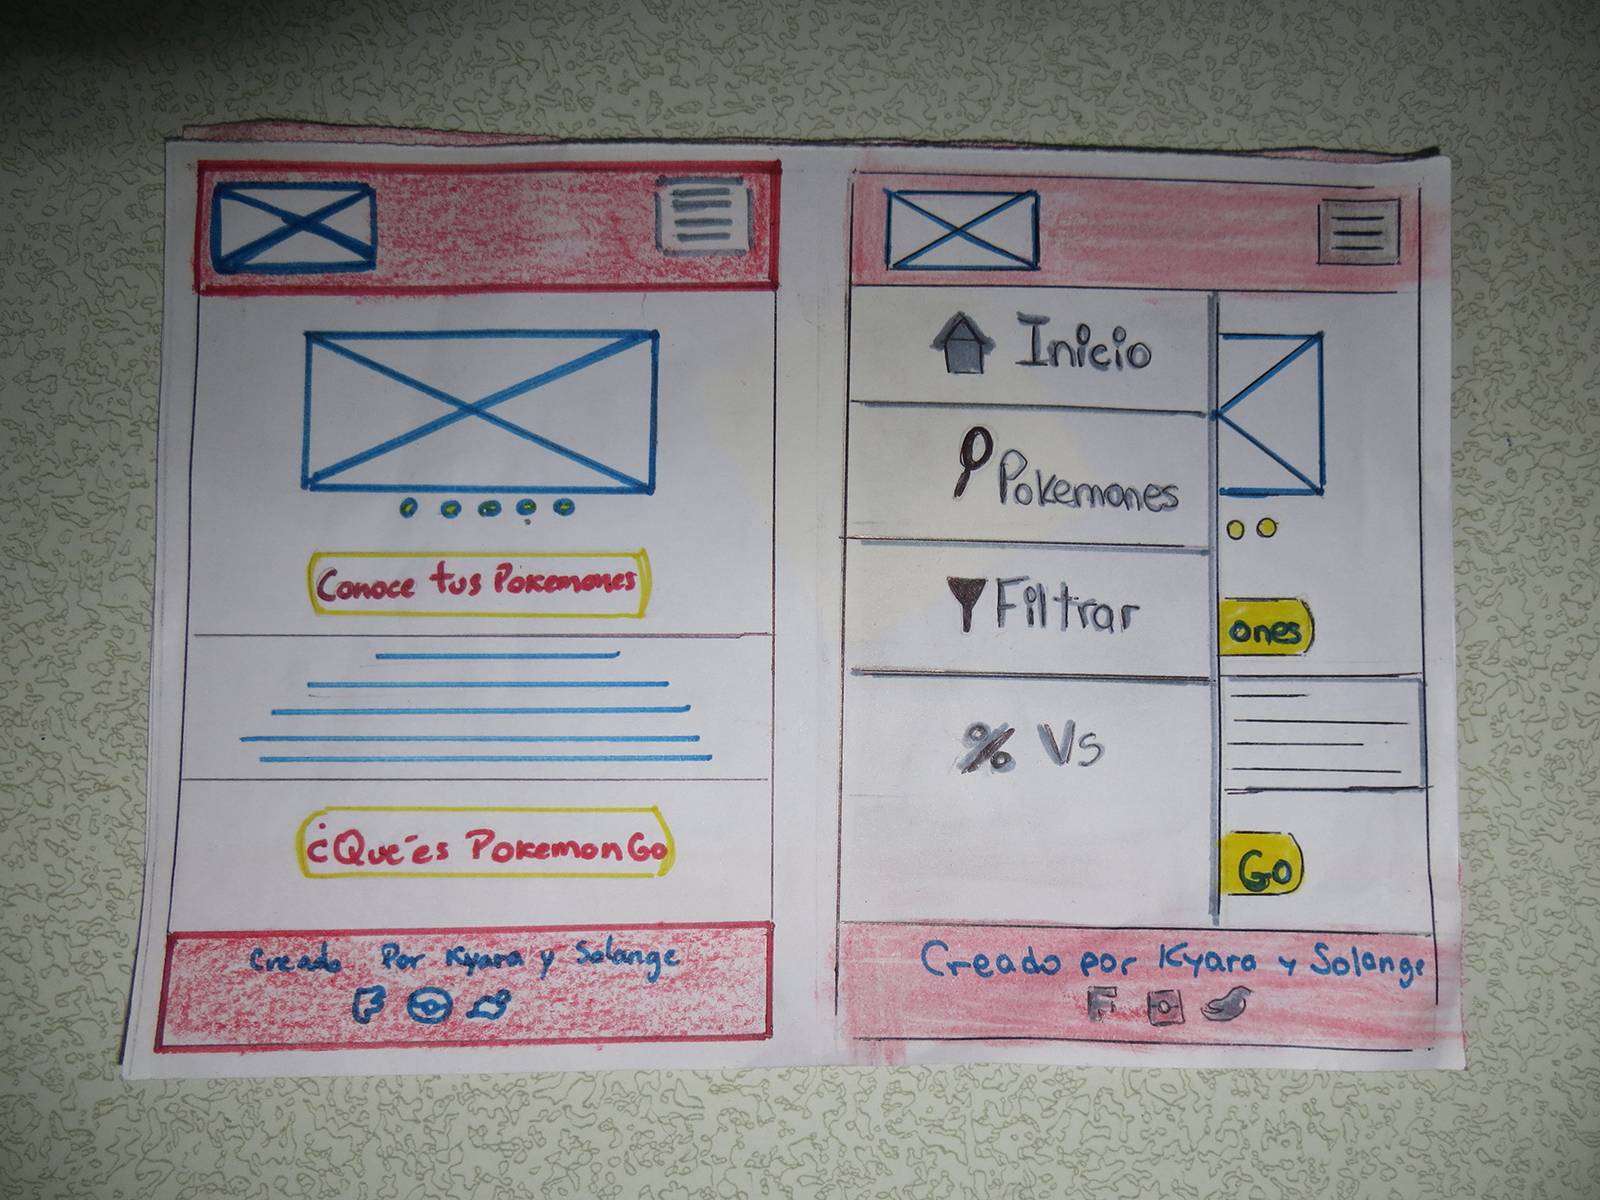 Conoce tus Pokemones
¿Que es PokemonGo
Creado Por Kyara y Solange
F
Inicio
Pokemones
Filtrar
% Vs
ones
Go
Creado por Kyara y Solange
F